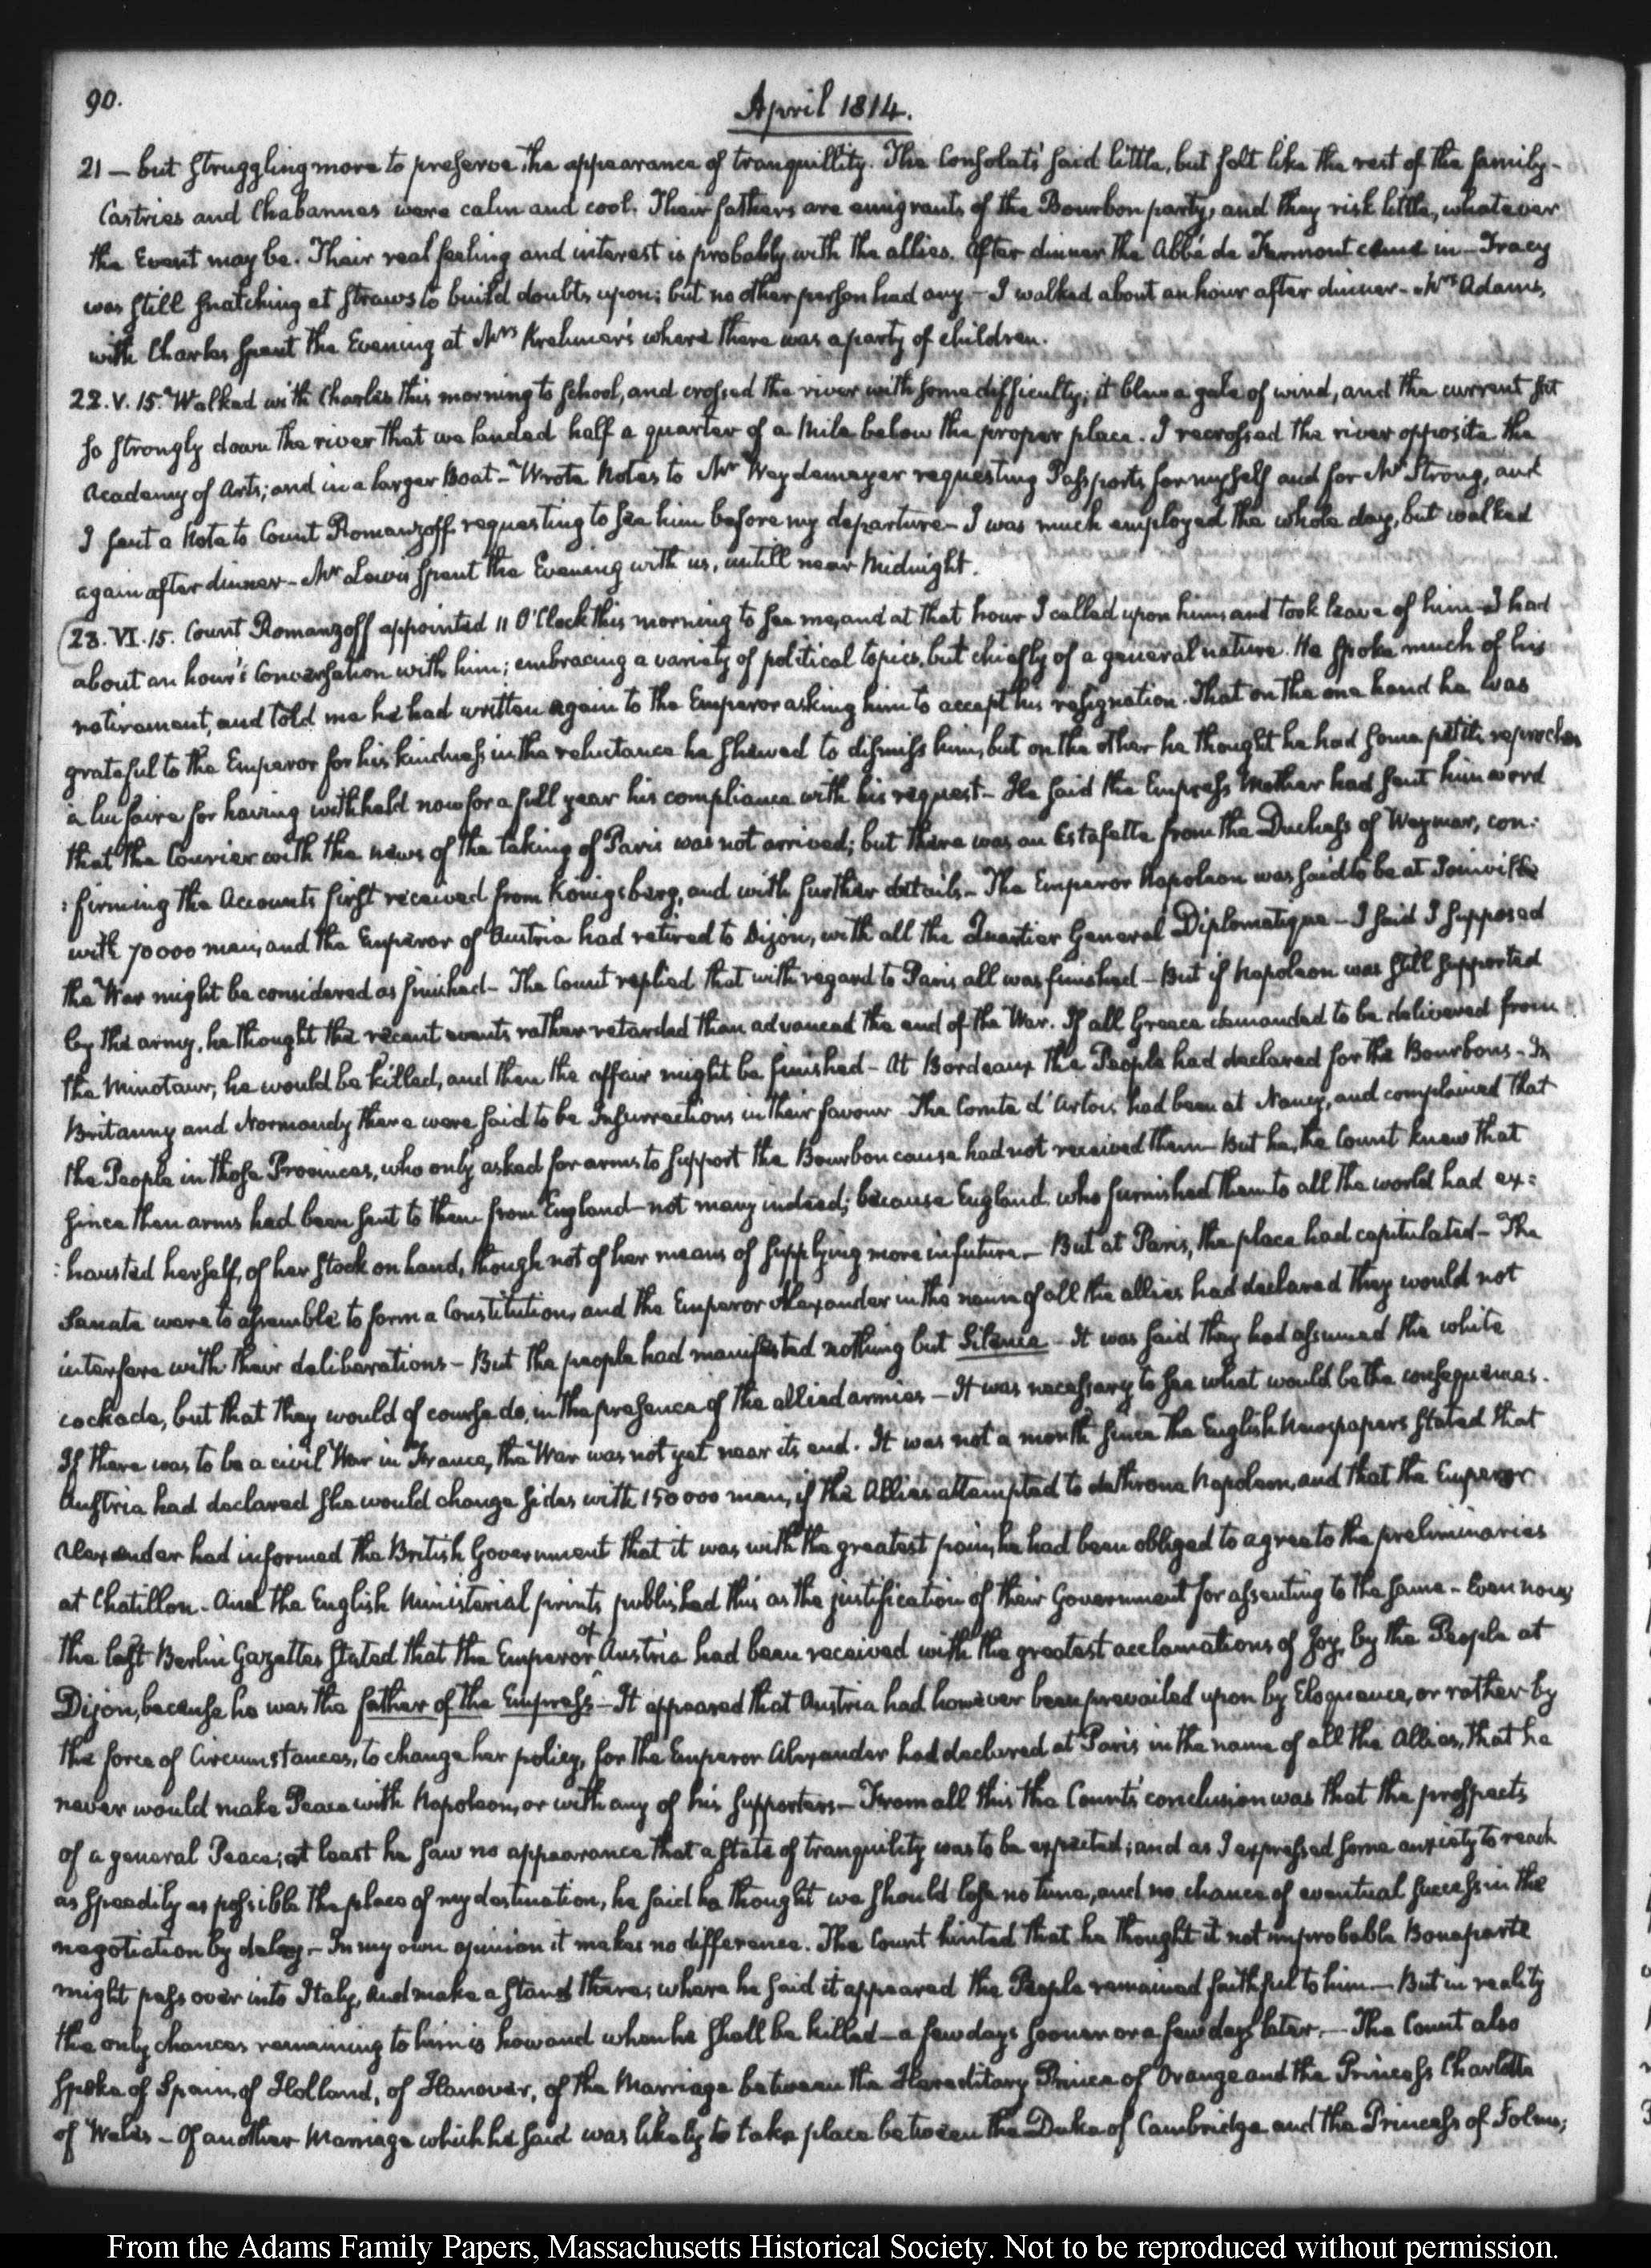 90.
April 1814.
21 — but struggling more to preserve the appearance of tranquillity. The Consolati's said little, but felt like the rest of the family —
Castries and Chabannes were calm and cool. Their fathers are emigrants of the Bourbon party, and they risk little, whatever
the Event may be. Their real feeling and interest is probably with the allies. After dinner the Abbé de came in — Tracy
was still snatching at straws to build doubts upon; but no other person had any — I walked about an hour after dinner — Mrs Adams,
with Charles spent the Evening at Mrs Krehmer's where there was a party of children.
22. V. 15. Walked with Charles this morning to school, and crossed the river with some difficulty; it blew a gale of wind, and the current set
so strongly down the river that we landed half a quarter of a Mile below the proper place. I recrossed the river opposite the
Academy of Arts; and in a larger Boat — Wrote Notes to Mr Weydemeyer requesting Passports for myself and for Mr Strong, and
I sent a Note to Count Romanzoff requesting to see him before my departure — I was much employed the whole day, but walked
again after dinner — Mr Lewis spent the Evening with us, untill near Midnight.
23. VI. 15. Count Romanzoff appointed 11 O'Clock this morning to see me, and at that hour I called upon him and took leave of him — I had
about an hour's Conversation with him; embracing a variety of political topics, but chiefly of a general nature. He spoke much of his
retirement, and told me he had written again to the Emperor asking him to accept his resignation. That on the one hand he was
grateful to the Emperor for his kindness in the reluctance he shewed to dismiss him, but on the other he thought he had some petits reproches
à lui faire for having withheld now for a full year his compliance with his request — He said the Empress Mother had sent him word
that the Courier with the news of the taking of Paris was not arrived; but there was an Estafette from the Duchess of Weymar, con:
:firming the Accounts first received from Königsberg, and with further details — The Emperor Napoleon was said to be at Joinville
with 70000 men, and the Emperor of Austria had retired to Dijon, with all the Quartier General Diplomatique — I said I supposed
the War might be considered as finished — The Count replied that with regard to Paris all was finished — But if Napoleon was still supported
by the army, he thought the recent events rather retarded than advanced the end of the War. If all Greece demanded to be delivered from
the Minotaur, he would be killed, and then the affair might be finished — At Bordeaux the People had declared for the Bourbons — In
Britanny and Normandy there were said to be Insurrections in their favour The Comte d'Artois had been at Nancy, and complained that
the People in those Provinces, who only asked for arms to support the Bourbon cause had not received them — But he, the Count knew that
since then arms had been sent to them from England — not many indeed; because England who furnished them to all the world had ex:
:hausted herself, of her stock on hand, though not of her means of supplying more in future. — But at Paris, the place had capitulated — The
Senate were to assemble to form a Constitution, and the Emperor Alexander in the name of all the allies had declared they would not
interfere with their deliberations — But the people had manifested nothing but Silence — It was said they had assumed the white
cockade, but that they would of course do, in the presence of the allied armies — It was necessary to see what would be the consequences.
If there was to be a civil War in France, the War was not yet near its end. It was not a month since the English Newspapers stated that
Austria had declared she would change sides with 150000 men, if the Allies attempted to dethrone Napoleon, and that the Emperor
Alexander had informed the British Government that it was with the greatest pain, he had been obliged to agree to the preliminaries
at Chatillon. And the English Ministerial prints published this as the justification of their Government for assenting to the same — Even now
the last Berlin Gazettes stated that the Emperor of Austria had been received with the greatest acclamations of Joy, by the People at
Dijon, because he was the father of the Empress — It appeared that Austria had however been prevailed upon by Eloquence, or rather by
the force of Circumstances, to change her policy, for the Emperor Alexander had declared at Paris in the name of all the Allies, that he
never would make Peace with Napoleon, or with any of his supporters — From all this the Count's conclusion was that the prospects
of a general Peace; at least he saw no appearance that a state of tranquility was to be expected; and as I expressed some anxiety to reach
as speedily as possible the place of my destination, he said he thought we should lose no time, and no chance of eventual success in the
negotiation by delay — In my own opinion it makes no difference. The Count hinted that he thought it not improbable Bonaparte
might pass over into Italy, and make a stand there; where he said it appeared the People remained faithful to him — But in reality
the only chances remaining to him is how and when he shall be killed — a few days sooner or a few days later. — The Count also
spoke of Spain, of Holland, of Hanover, of the Marriage between the Hereditary Prince of Orange and the Princess Charlotte
of Wales — Of another Marriage which he said was likely to take place between the Duke of Cambridge and the Princess of Solms;
From the Adams Family Papers, Massachusetts Historical Society. Not to be reproduced without permission.